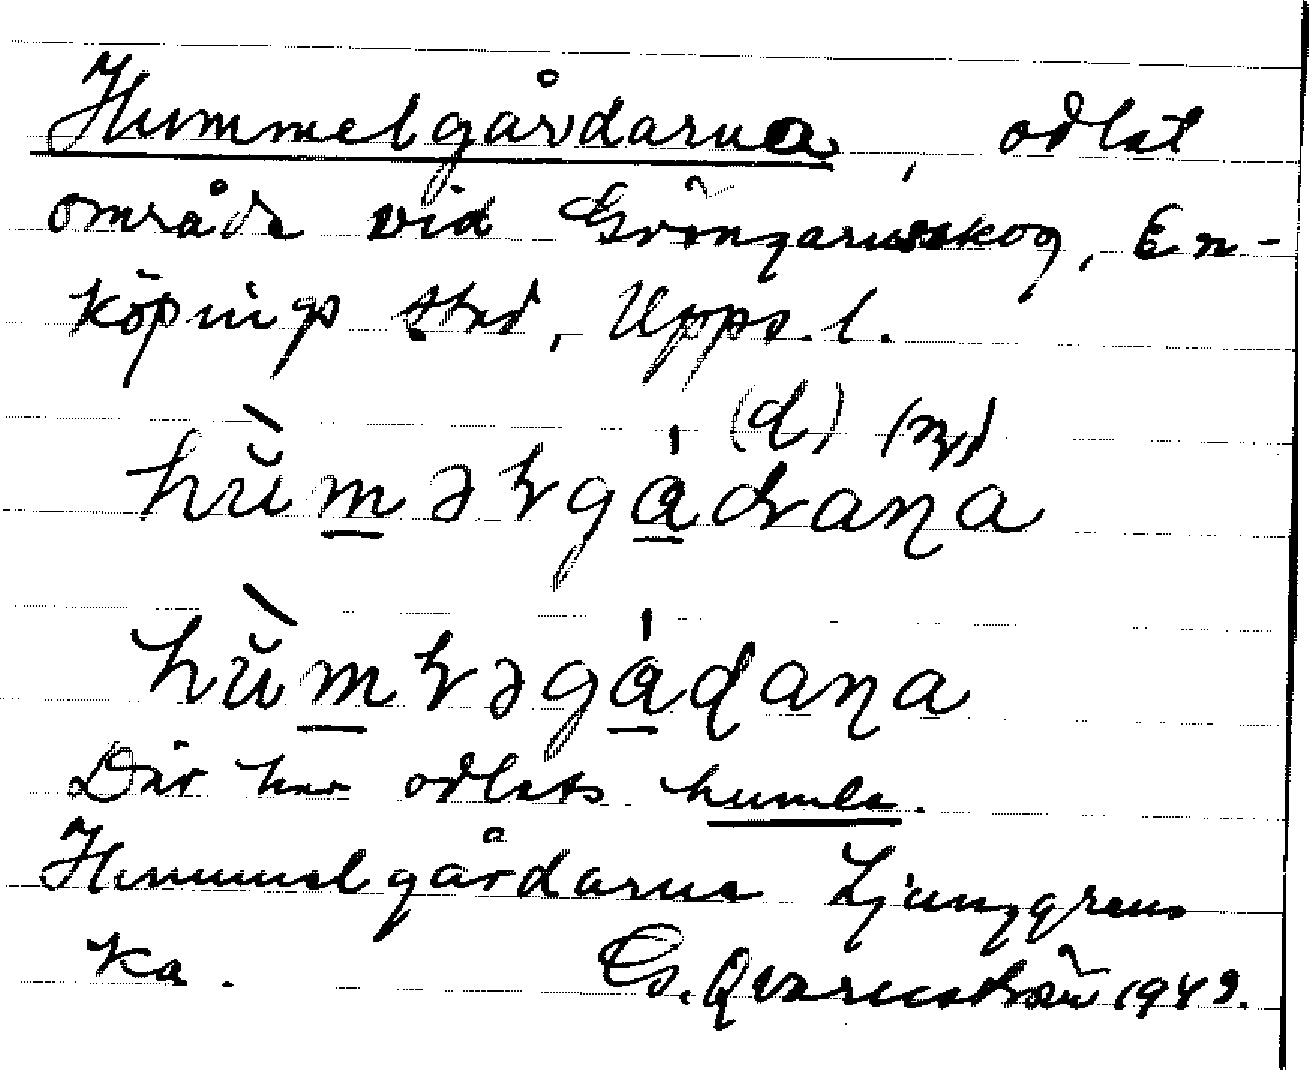 Hummelgårdarna, odlat
område vid Gröngarnsskog, En-
köpings stad, Upps. l.
(d) (n)
hŭ̀məlgádrana
hŭ̀mləgáɖaɳa
Där har odlats humle.
Hummelgårdarna Ljunggrens
ka. G. Qvarnström 1949.